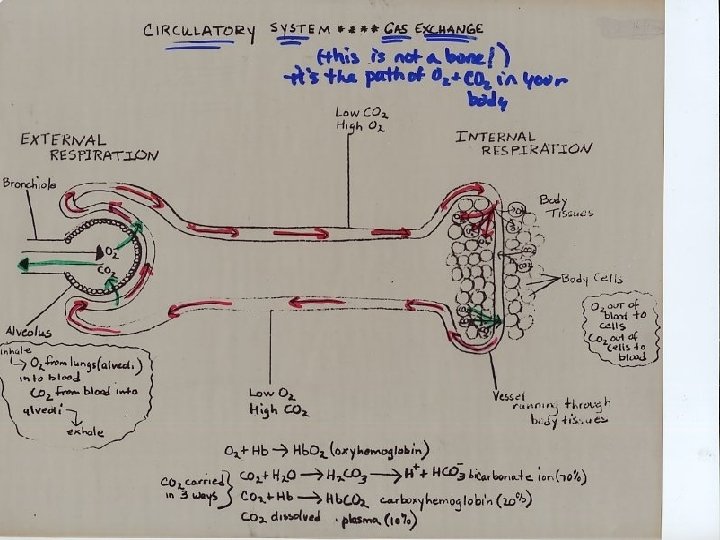 CIRCULATORY SYSTEM **** GAS EXCHANGE
(this is not a bone!)
it's the path of O₂ + CO₂ in your
body
Low CO₂
High O₂
EXTERNAL
RESPIRATION
INTERNAL
RESPIRATION
Bronchiole
Body
Tissues
O₂
CO₂
Body Cells
O₂ out of
blood to
cells
CO₂ out of
cells to
blood
Alveolus
inhale
→ O₂ from lungs (alveoli)
into blood
CO₂ from blood into
alveoli
exhale
Low O₂
High CO₂
Vessel
running through
body tissues
O₂ + Hb → HbO₂ (oxyhemoglobin)
CO₂ carried
in 3 ways
CO₂ + H₂O → H₂CO₃ → H⁺ + HCO₃⁻ bicarbonate ion (70%)
CO₂ + Hb → HbCO₂ carboxyhemoglobin (20%)
CO₂ dissolved · plasma (10%)